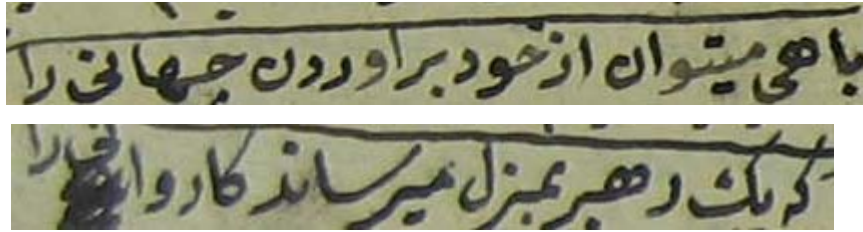 باهی میتوان از خود براوردن جهانی را
که یک رهبر بمنزل میرساند کاروانی را